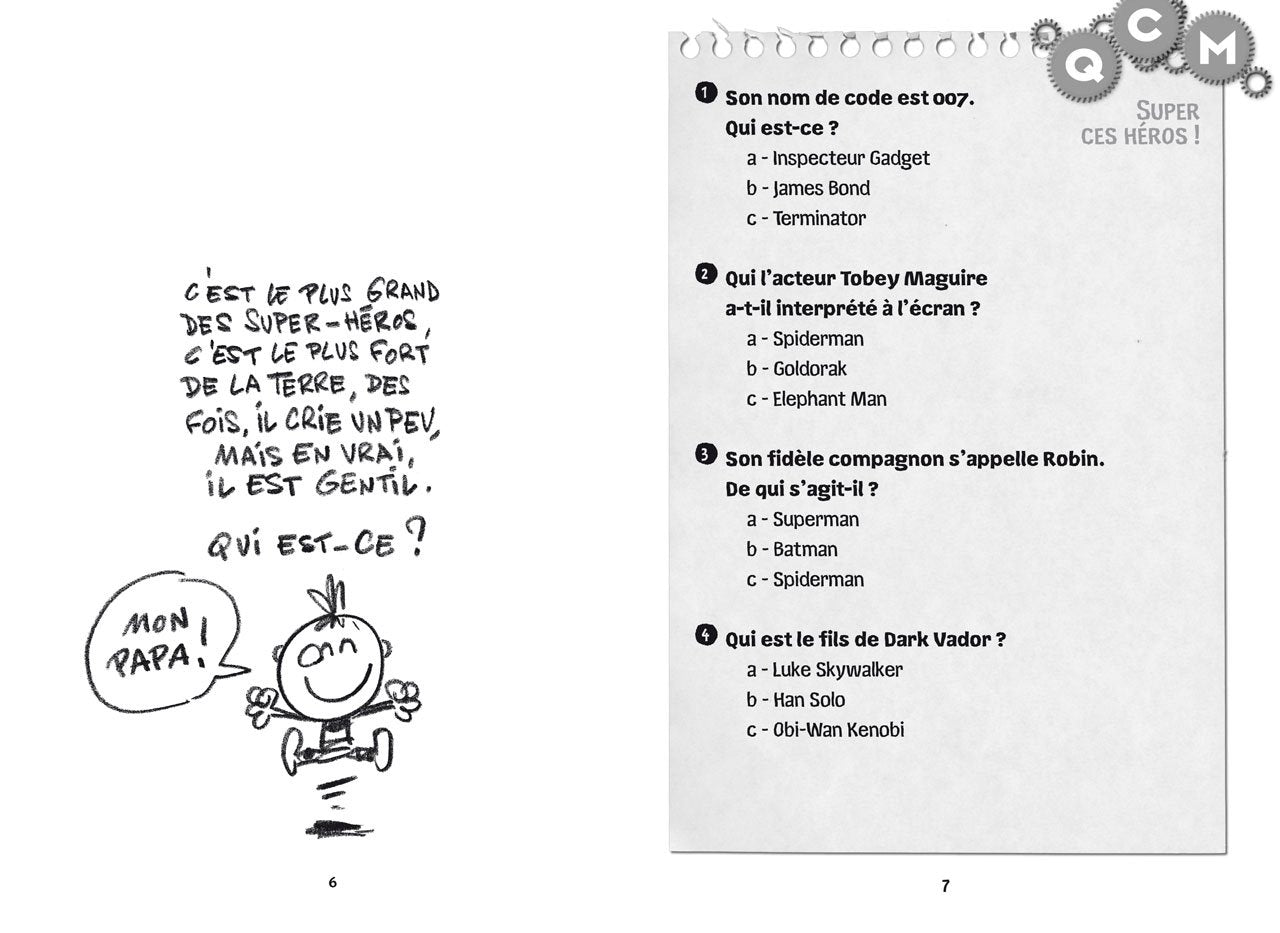 C'EST LE PLUS GRAND
DES SUPER-HÉROS,
C'EST LE PLUS FORT
DE LA TERRE, DES
FOIS, IL CRIE UN PEU,
MAIS EN VRAI,
IL EST GENTIL.
QUI EST-CE ?
MON
PAPA !
6
QCM
SUPER
CES HÉROS !
1 Son nom de code est 007.
Qui est-ce ?
a - Inspecteur Gadget
b - James Bond
c - Terminator
2 Qui l'acteur Tobey Maguire
a-t-il interprété à l'écran ?
a - Spiderman
b - Goldorak
c - Elephant Man
3 Son fidèle compagnon s'appelle Robin.
De qui s'agit-il ?
a - Superman
b - Batman
c - Spiderman
4 Qui est le fils de Dark Vador ?
a - Luke Skywalker
b - Han Solo
c - Obi-Wan Kenobi
7